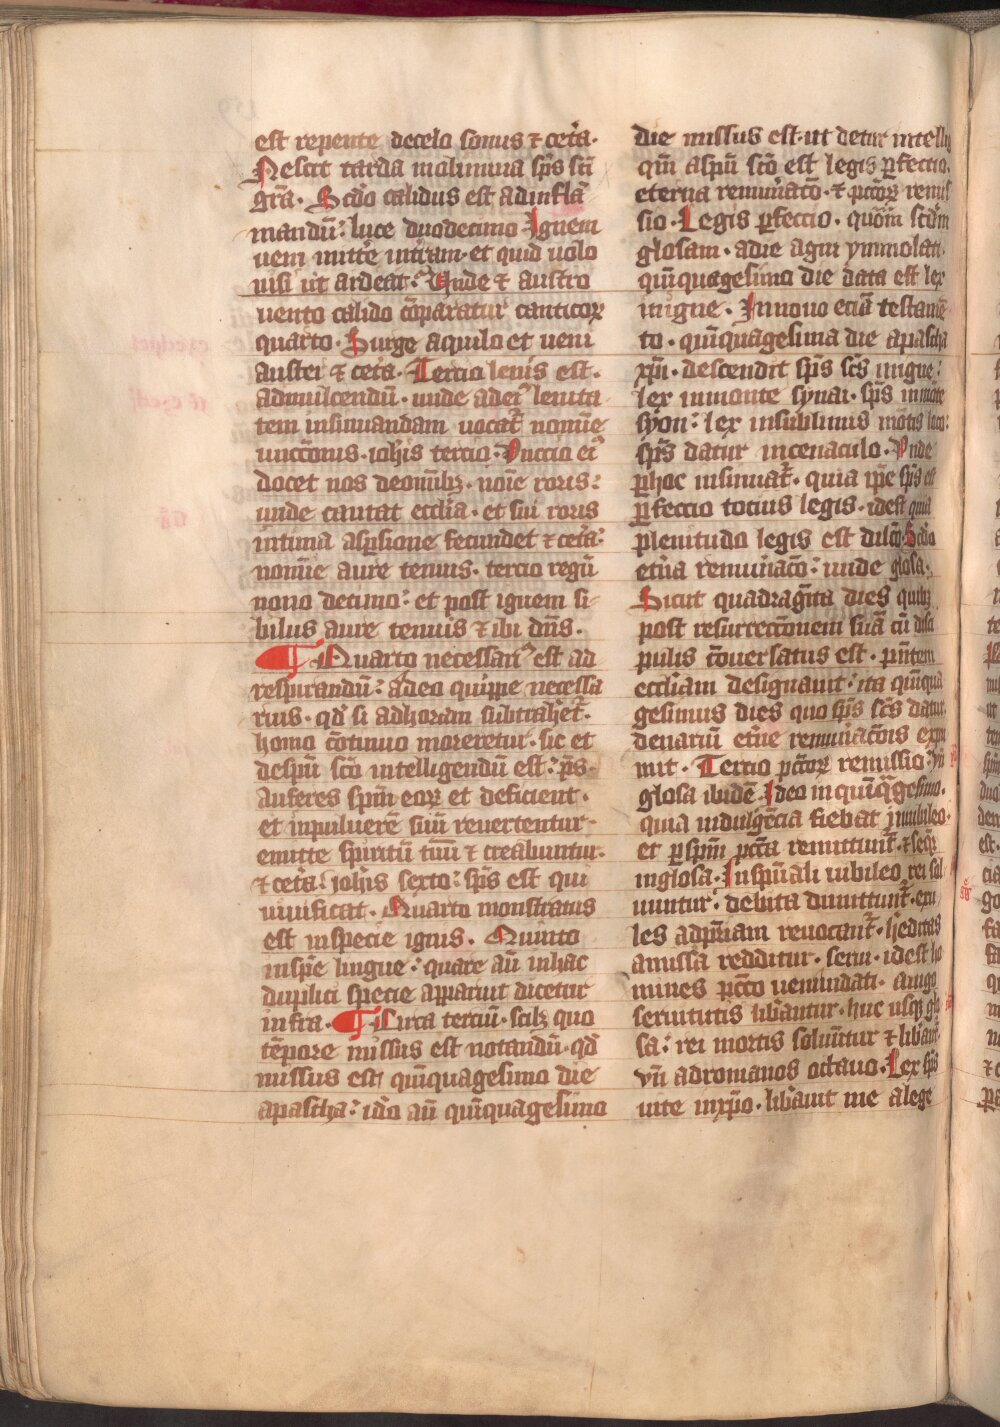 est repente decelo sonus ⁊ cet̃a·
Nescit tarda molimina sp̃s sc̃i
gr̃a· Scďo calidus est adinfla
mandũ: luce duodecimo Ignem
ueni mitte̾ int̾ram· et quid uolo
nisi ut ardeat: Unde ⁊ austro
uento calido cõparatur canticoꝝ
quarto· Surge aquilo et ueni
auster ⁊ cet̃a· Tercio lenis est·
admulcendũ· unde adeiꝰ lenita
tem insinuandam uocat᷑ nomĩe
unctõnis· ioh̃is tercio: Unccio eiꝰ
docet nos deomĩbꝫ· noĩe roris:
unde cantat eccl̃ia· et sui roris
intima asp̱sione fecundet ⁊ cet̃a:
nomĩe aure tenuis· tercio regũ
nono decimo: et post ignem si
bilus aure tenuis ⁊ ibi dñs·
¶ Quarto necessariꝰ est ad
respirandũ: adeo quippe necessa
rius· qď si adhoram subtrahet᷑·
homo cõtinuo moreretur· sic et
desp̃u sc̃o intelligendũ est: p̃s·
Auferes sp̃m eoꝝ et deficient·
et inpuluerẽ suũ reuertentur·
emitte spiritũ tuũ ⁊ creabuntur·
⁊ cet̃a: ioh̃is sexto: sp̃s est qui
uiuificat· Quarto monstratus
est inspecie ignis· Quinto
insp̃e lingue: quare aũ inhac
duplici specie apparuit dicetur
infra· ¶ Circa terciũ· scilꝫ quo
tẽpore missus est notandũ· qď
missus est quĩquagesimo die
apascha: ido̾ aũ quĩquagesimo
die missus est· ut detur intelli
qm̃ asp̃u sc̃o est legis ꝑfectio·
eterna remun̾atõ· ⁊ pctõꝝ remis
sio· Legis ꝑfeccio· quõm scďm
glosam· adie agni ymmolati·
quĩquagesimo die data est lex
inigne· Innouo eciã testamẽ
to· quĩquagesima die apascha
xp̃i· descendit sp̃s sc̃s inigne:
lex inmonte synai· sp̃s inmõte
syon: lex insublimis mõtis loco:
sp̃s datur incenaculo· Unde
ꝑhoc insinuat᷑· quia ip̃e sp̃s est
ꝑfeccio tocius legis· idest quia
plenitudo legis est dilc̃o· Scďo
et̾na remun̾atõ: unde glosa·
Sicut quadragĩta dies quibꝫ
post resurrectõnem suã cũ disci
pulis cõuersatus est· p̃ntem
eccl̃iam designauit: ita quĩqua
gesimus dies quo sp̃s sc̃s datur
denariũ et̾ne remun̾atõis expri
mit· Tercio pctõꝝ remissio: vñ
glosa ibidẽ· Ideo inquĩq̃gesimo·
quia indulgẽcia fiebat iniubileo·
et ꝑsp̃m pctã remittunt᷑· ⁊ seqꝫ
inglosa· Insp̃uali iubileo rei sol
uuntur: debita dimittunt᷑· exu
les adpr̃iam reuocant᷑· h̾editas
amissa redditur· serui· idest ho
mines pctõ uenundati· aiugo
seruitutis lib̾antur· huc usqꝫ glo
sa: rei mortis soluũtur ⁊ lib̾ant᷑·
vñ adromanos octauo· Lex sp̃s
uite inxp̃o· lib̾auit me alege